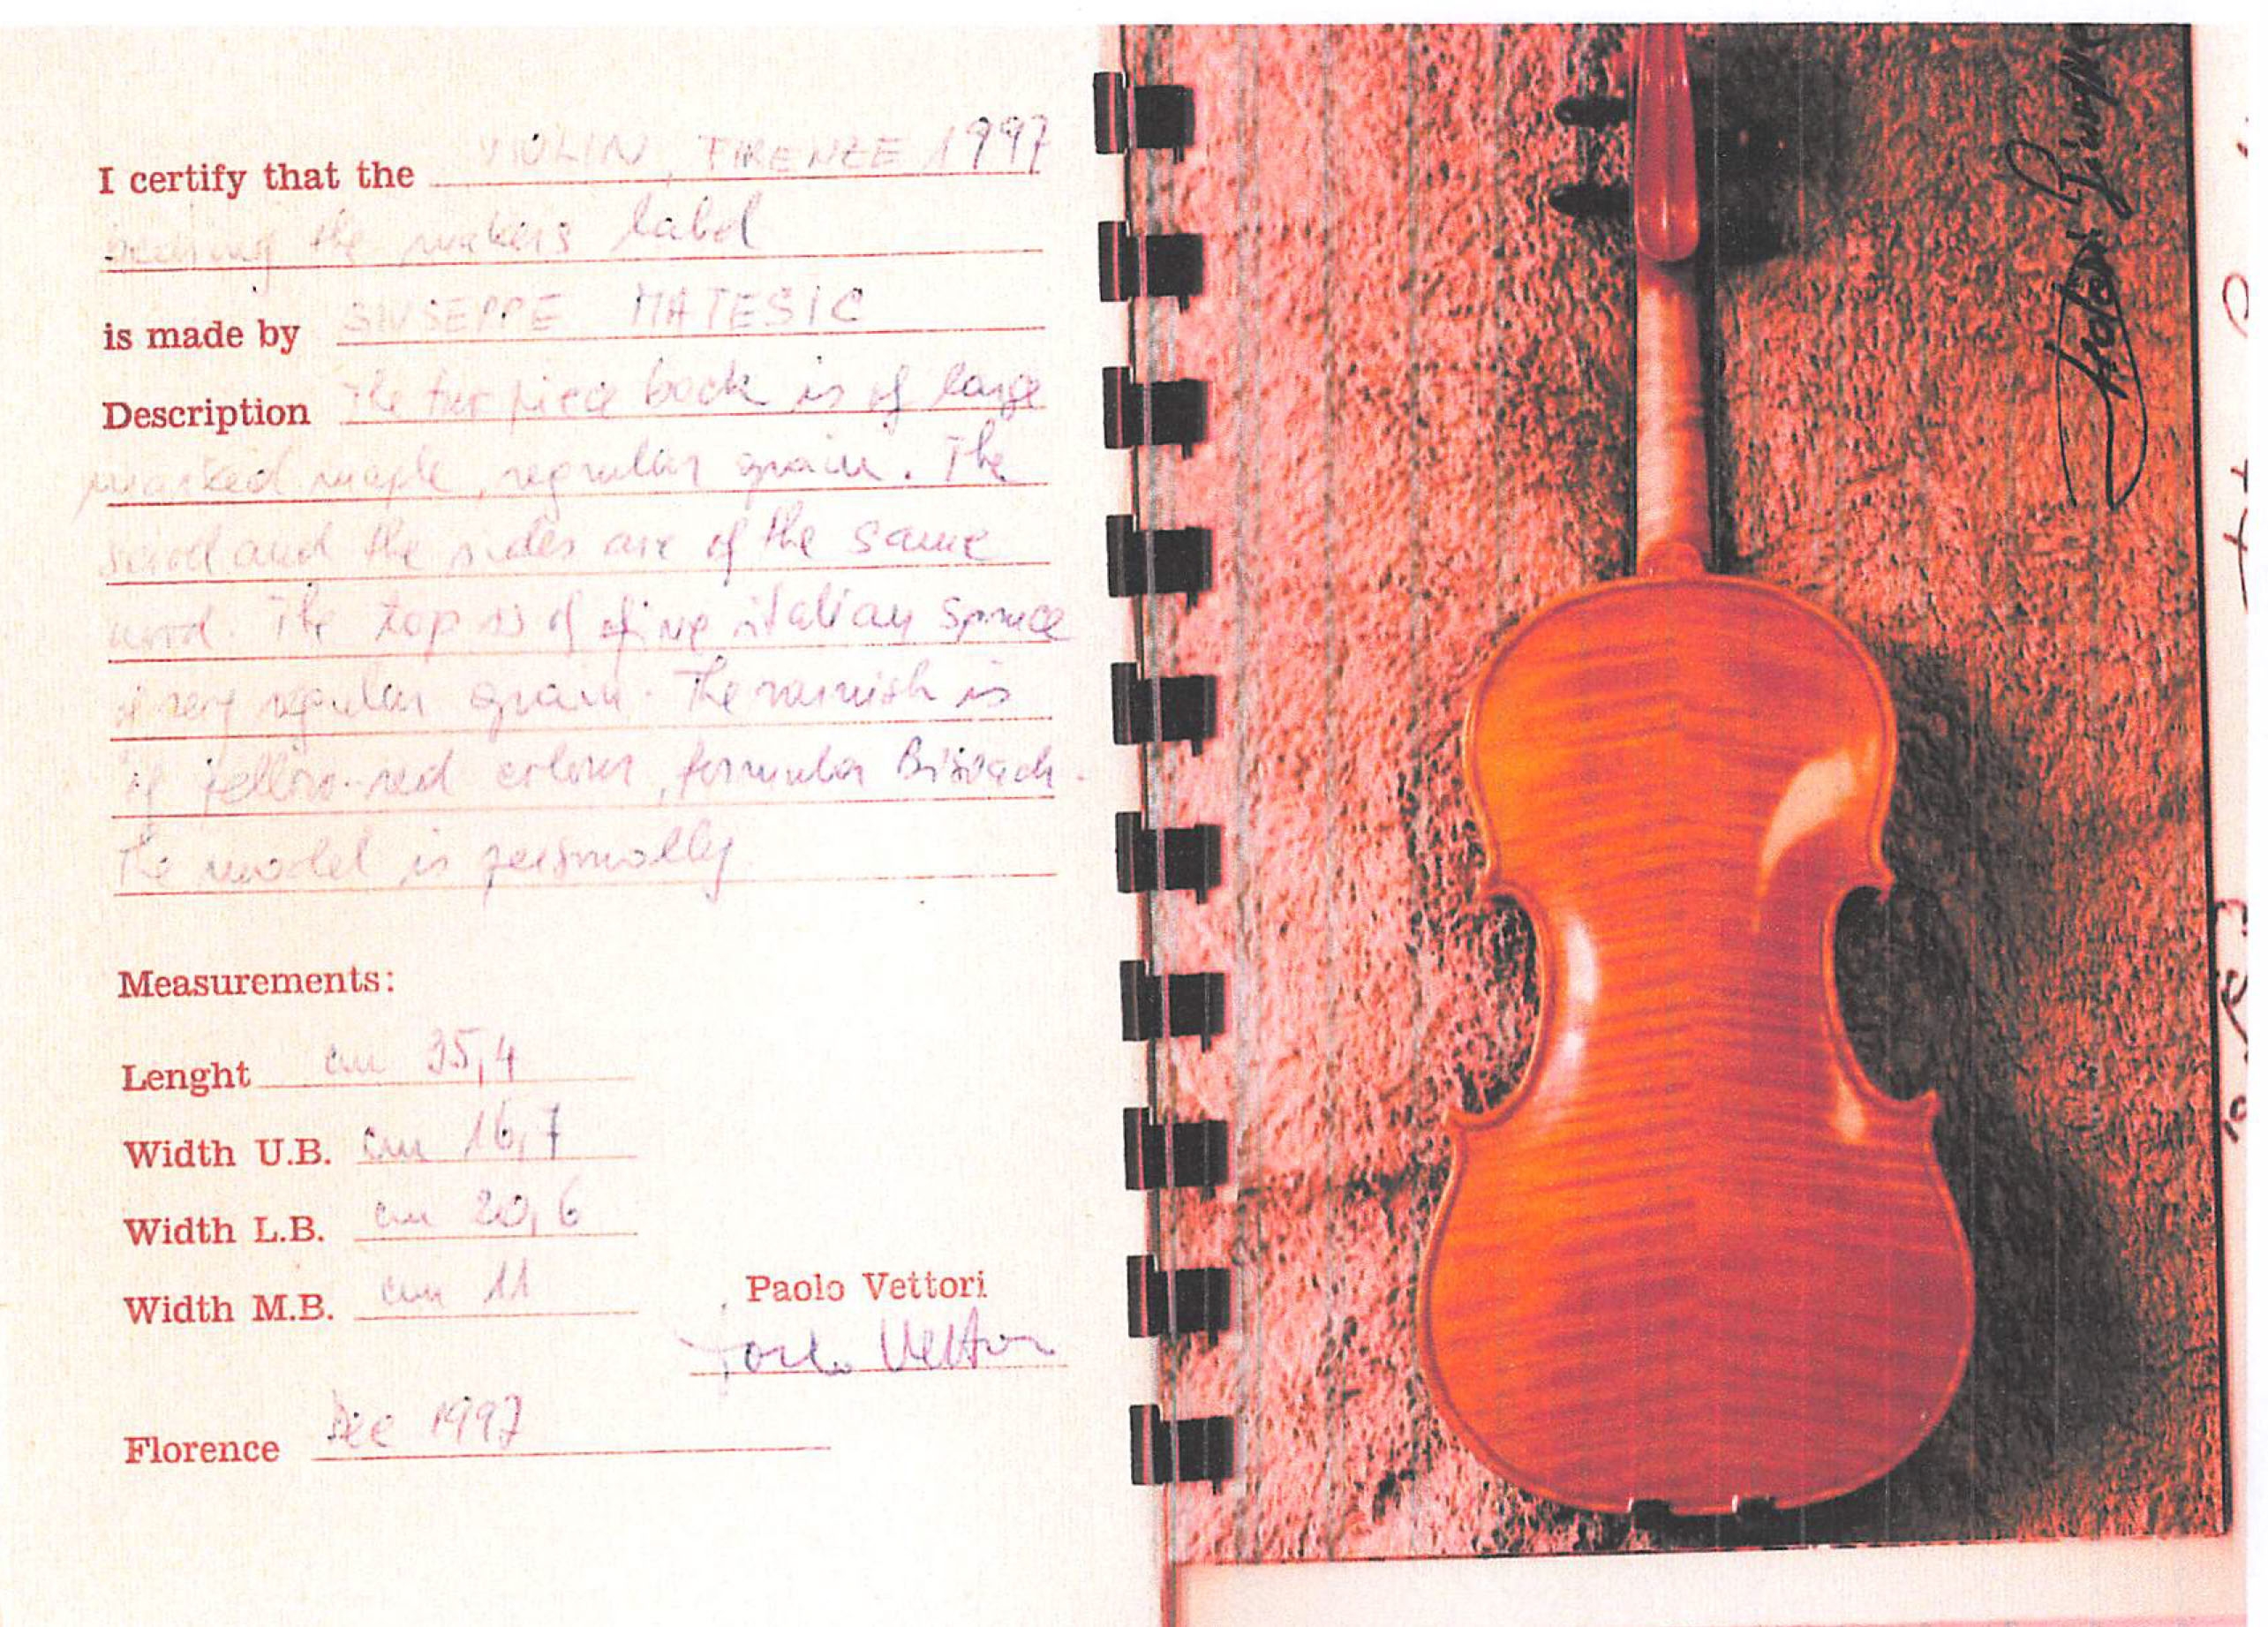 I certify that the VIOLIN, FIRENZE 1997
bearing the makers label
is made by GIUSEPPE MATESIC
Description The two piece back is of large
marked maple, regular grain. The
scroll and the sides are of the same
wood. The top is of fine italian spruce
of very regular grain. The varnish is
of yellow-red colour, formula Bisiach.
The model is personally
Measurements:
Lenght cm 35,4
Width U.B. cm 16,7
Width L.B. cm 20,6
Width M.B. cm 11
Paolo Vettori
Paolo Vettori
Florence Dec 1997